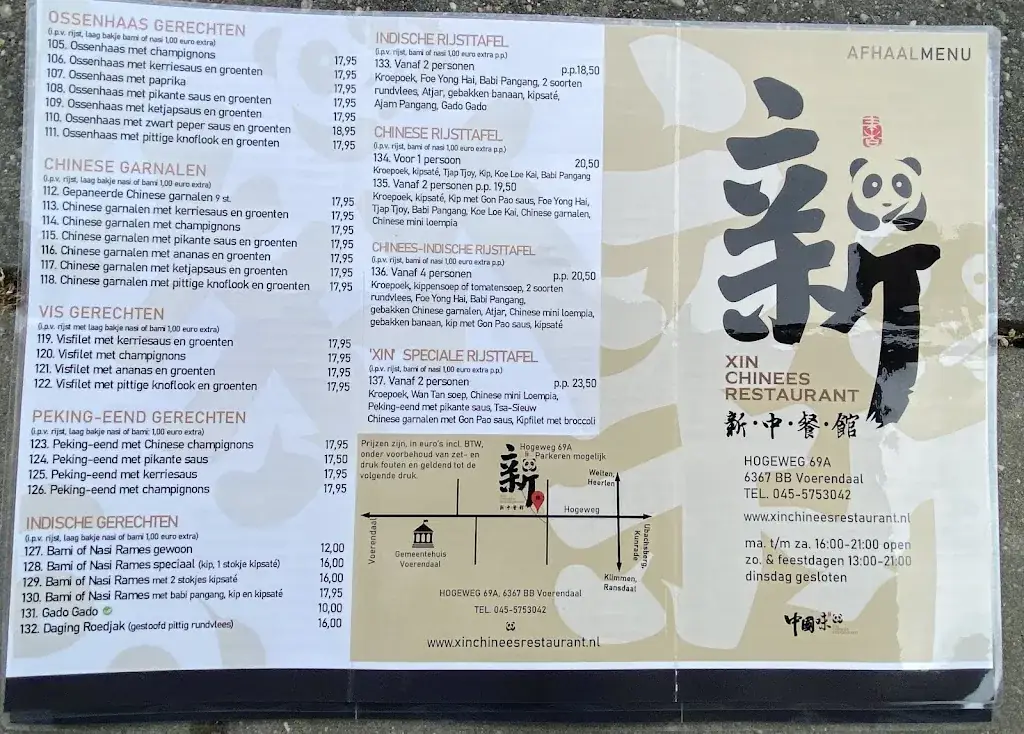 OSSENHAAS GERECHTEN
(i.p.v. rijst, laag bakje bami of nasi 1,00 euro extra)
105. Ossenhaas met champignons 17,95
106. Ossenhaas met kerriesaus en groenten 17,95
107. Ossenhaas met paprika 17,95
108. Ossenhaas met pikante saus en groenten 17,95
109. Ossenhaas met ketjapsaus en groenten 17,95
110. Ossenhaas met zwart peper saus en groenten 18,95
111. Ossenhaas met pittige knoflook en groenten 17,95
CHINESE GARNALEN
(i.p.v. rijst, laag bakje nasi of bami 1,00 euro extra)
112. Gepaneerde Chinese garnalen 9 st. 17,95
113. Chinese garnalen met kerriesaus en groenten 17,95
114. Chinese garnalen met champignons 17,95
115. Chinese garnalen met pikante saus en groenten 17,95
116. Chinese garnalen met ananas en groenten 17,95
117. Chinese garnalen met ketjapsaus en groenten 17,95
118. Chinese garnalen met pittige knoflook en groenten 17,95
VIS GERECHTEN
(i.p.v. rijst met laag bakje nasi of bami 1,00 euro extra)
119. Visfilet met kerriesaus en groenten 17,95
120. Visfilet met champignons 17,95
121. Visfilet met ananas en groenten 17,95
122. Visfilet met pittige knoflook en groenten 17,95
PEKING-EEND GERECHTEN
(i.p.v. rijst, laag bakje nasi of bami: 1,00 euro extra)
123. Peking-eend met Chinese champignons 17,95
124. Peking-eend met pikante saus 17,50
125. Peking-eend met kerriesaus 17,95
126. Peking-eend met champignons 17,95
INDISCHE GERECHTEN
(i.p.v. rijst, laag bakje nasi of bami: 1,00 euro extra)
127. Bami of Nasi Rames gewoon 12,00
128. Bami of Nasi Rames speciaal (kip, 1 stokje kipsaté) 16,00
129. Bami of Nasi Rames met 2 stokjes kipsaté 16,00
130. Bami of Nasi Rames met babi pangang, kip en kipsaté 17,95
131. Gado Gado 10,00
132. Daging Roedjak (gestoofd pittig rundvlees) 16,00
INDISCHE RIJSTTAFEL
(i.p.v. rijst, bami of nasi 1,00 euro extra p.p.)
133. Vanaf 2 personen p.p.18,50
Kroepoek, Foe Yong Hai, Babi Pangang, 2 soorten
rundvlees, Atjar, gebakken banaan, kipsaté,
Ajam Pangang, Gado Gado
CHINESE RIJSTTAFEL
(i.p.v. rijst, bami of nasi 1,00 euro extra p.p.)
134. Voor 1 persoon 20,50
Kroepoek, kipsaté, Tjap Tjoy, Kip, Koe Loe Kai, Babi Pangang
135. Vanaf 2 personen p.p. 19,50
Kroepoek, kipsaté, Kip met Gon Pao saus, Foe Yong Hai,
Tjap Tjoy, Babi Pangang, Koe Loe Kai, Chinese garnalen,
Chinese mini loempia
CHINEES-INDISCHE RIJSTTAFEL
(i.p.v. rijst, bami of nasi 1,00 euro extra p.p.)
136. Vanaf 4 personen p.p. 20,50
Kroepoek, kippensoep of tomatensoep, 2 soorten
rundvlees, Foe Yong Hai, Babi Pangang,
gebakken Chinese garnalen, Atjar, Chinese mini loempia,
gebakken banaan, kip met Gon Pao saus, kipsaté
'XIN' SPECIALE RIJSTTAFEL
(i.p.v. rijst, bami of nasi 1,00 euro extra p.p.)
137. Vanaf 2 personen p.p. 23,50
Kroepoek, Wan Tan soep, Chinese mini Loempia,
Peking-eend met pikante saus, Tsa-Sieuw
Chinese garnalen met Gon Pao saus, Kipfilet met broccoli
Prijzen zijn, in euro's incl. BTW,
onder voorbehoud van zet- en
druk fouten en geldend tot de
volgende druk.
新
新·中·餐·館
Hogeweg 69A
Parkeren mogelijk
Welten,
Heerlen
Hogeweg
Voerendaal
Gemeentehuis
Voerendaal
Ubachsberg,
Kunrade
Klimmen,
Ransdaal
HOGEWEG 69A, 6367 BB Voerendaal
TEL. 045-5753042
www.xinchineesrestaurant.nl
AFHAALMENU
新
XIN
CHINEES
RESTAURANT
新·中·餐·館
HOGEWEG 69A
6367 BB Voerendaal
TEL. 045-5753042
www.xinchineesrestaurant.nl
ma. t/m za. 16:00-21:00 open
zo. & feestdagen 13:00-21:00
dinsdag gesloten
中國味